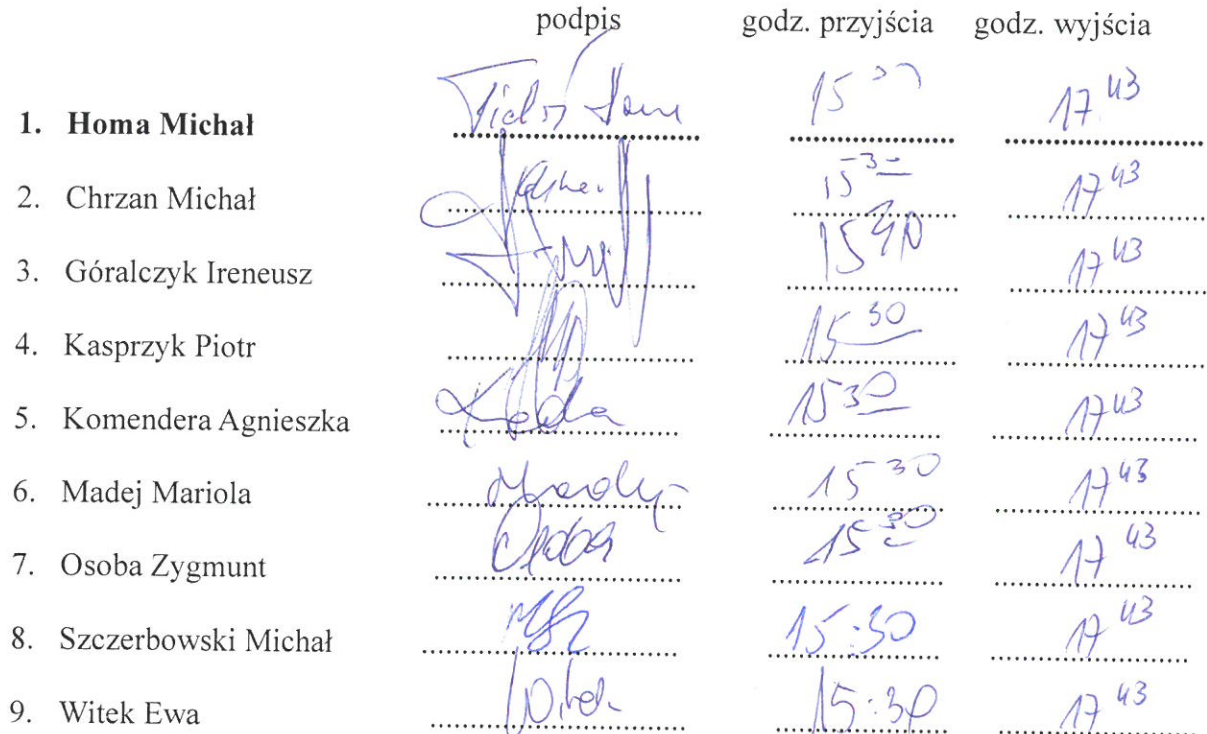 podpis godz. przyjścia godz. wyjścia
1. Homa Michał 17 43
2. Chrzan Michał 15 30 17 43
3. Góralczyk Ireneusz 15 40 17 43
4. Kasprzyk Piotr 15 30 17 43
5. Komendera Agnieszka 15 30 17 43
6. Madej Mariola Madej 15 30 17 43
7. Osoba Zygmunt Osoba 15 30 17 43
8. Szczerbowski Michał 15:30 17 43
9. Witek Ewa Witek 15:30 17 43